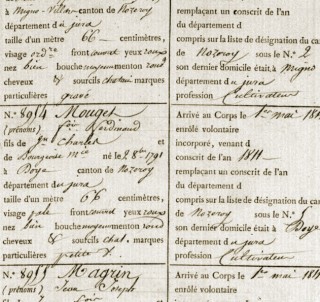 à Mignovillar canton de Nozeroy
département du jura
taille d'un mètre 66 centimètres,
visage front couvert yeux roux
nez bien bouche moyen menton rond
cheveux & sourcils chatain marques
particulières gravé
N.° 8954 Mouget
(prénoms) Ferdinand
fils de Jn Charles et
de Bourgeoise Mie né le 28bre 1791
à Doye canton de nozeroy
département du jura
taille d'un mètre 66 centimètres,
visage pale front couvert yeux roux
nez bien bouche moyen menton rond
cheveux & sourcils chat. marques
particulières
N.° 8955 Magrin
(prénoms) Jean Joseph
remplaçant un conscrit de l'an
département d
compris sur la liste de désignation du can
de Nozeroy sous le N.° 2
son dernier domicile était à Migno
département du jura
profession Cultivateur
Arrivé au Corps le 1er mai 181
enrôlé volontaire
incorporé, venant d
conscrit de l'an 1811
remplaçant un conscrit de l'an
département d
compris sur la liste de désignation du can
de Nozeroy sous le N.°
son dernier domicile était à Doye
département du jura
profession Cultivateur
Arrivé au Corps le 1er mai 181
enrôlé volontaire